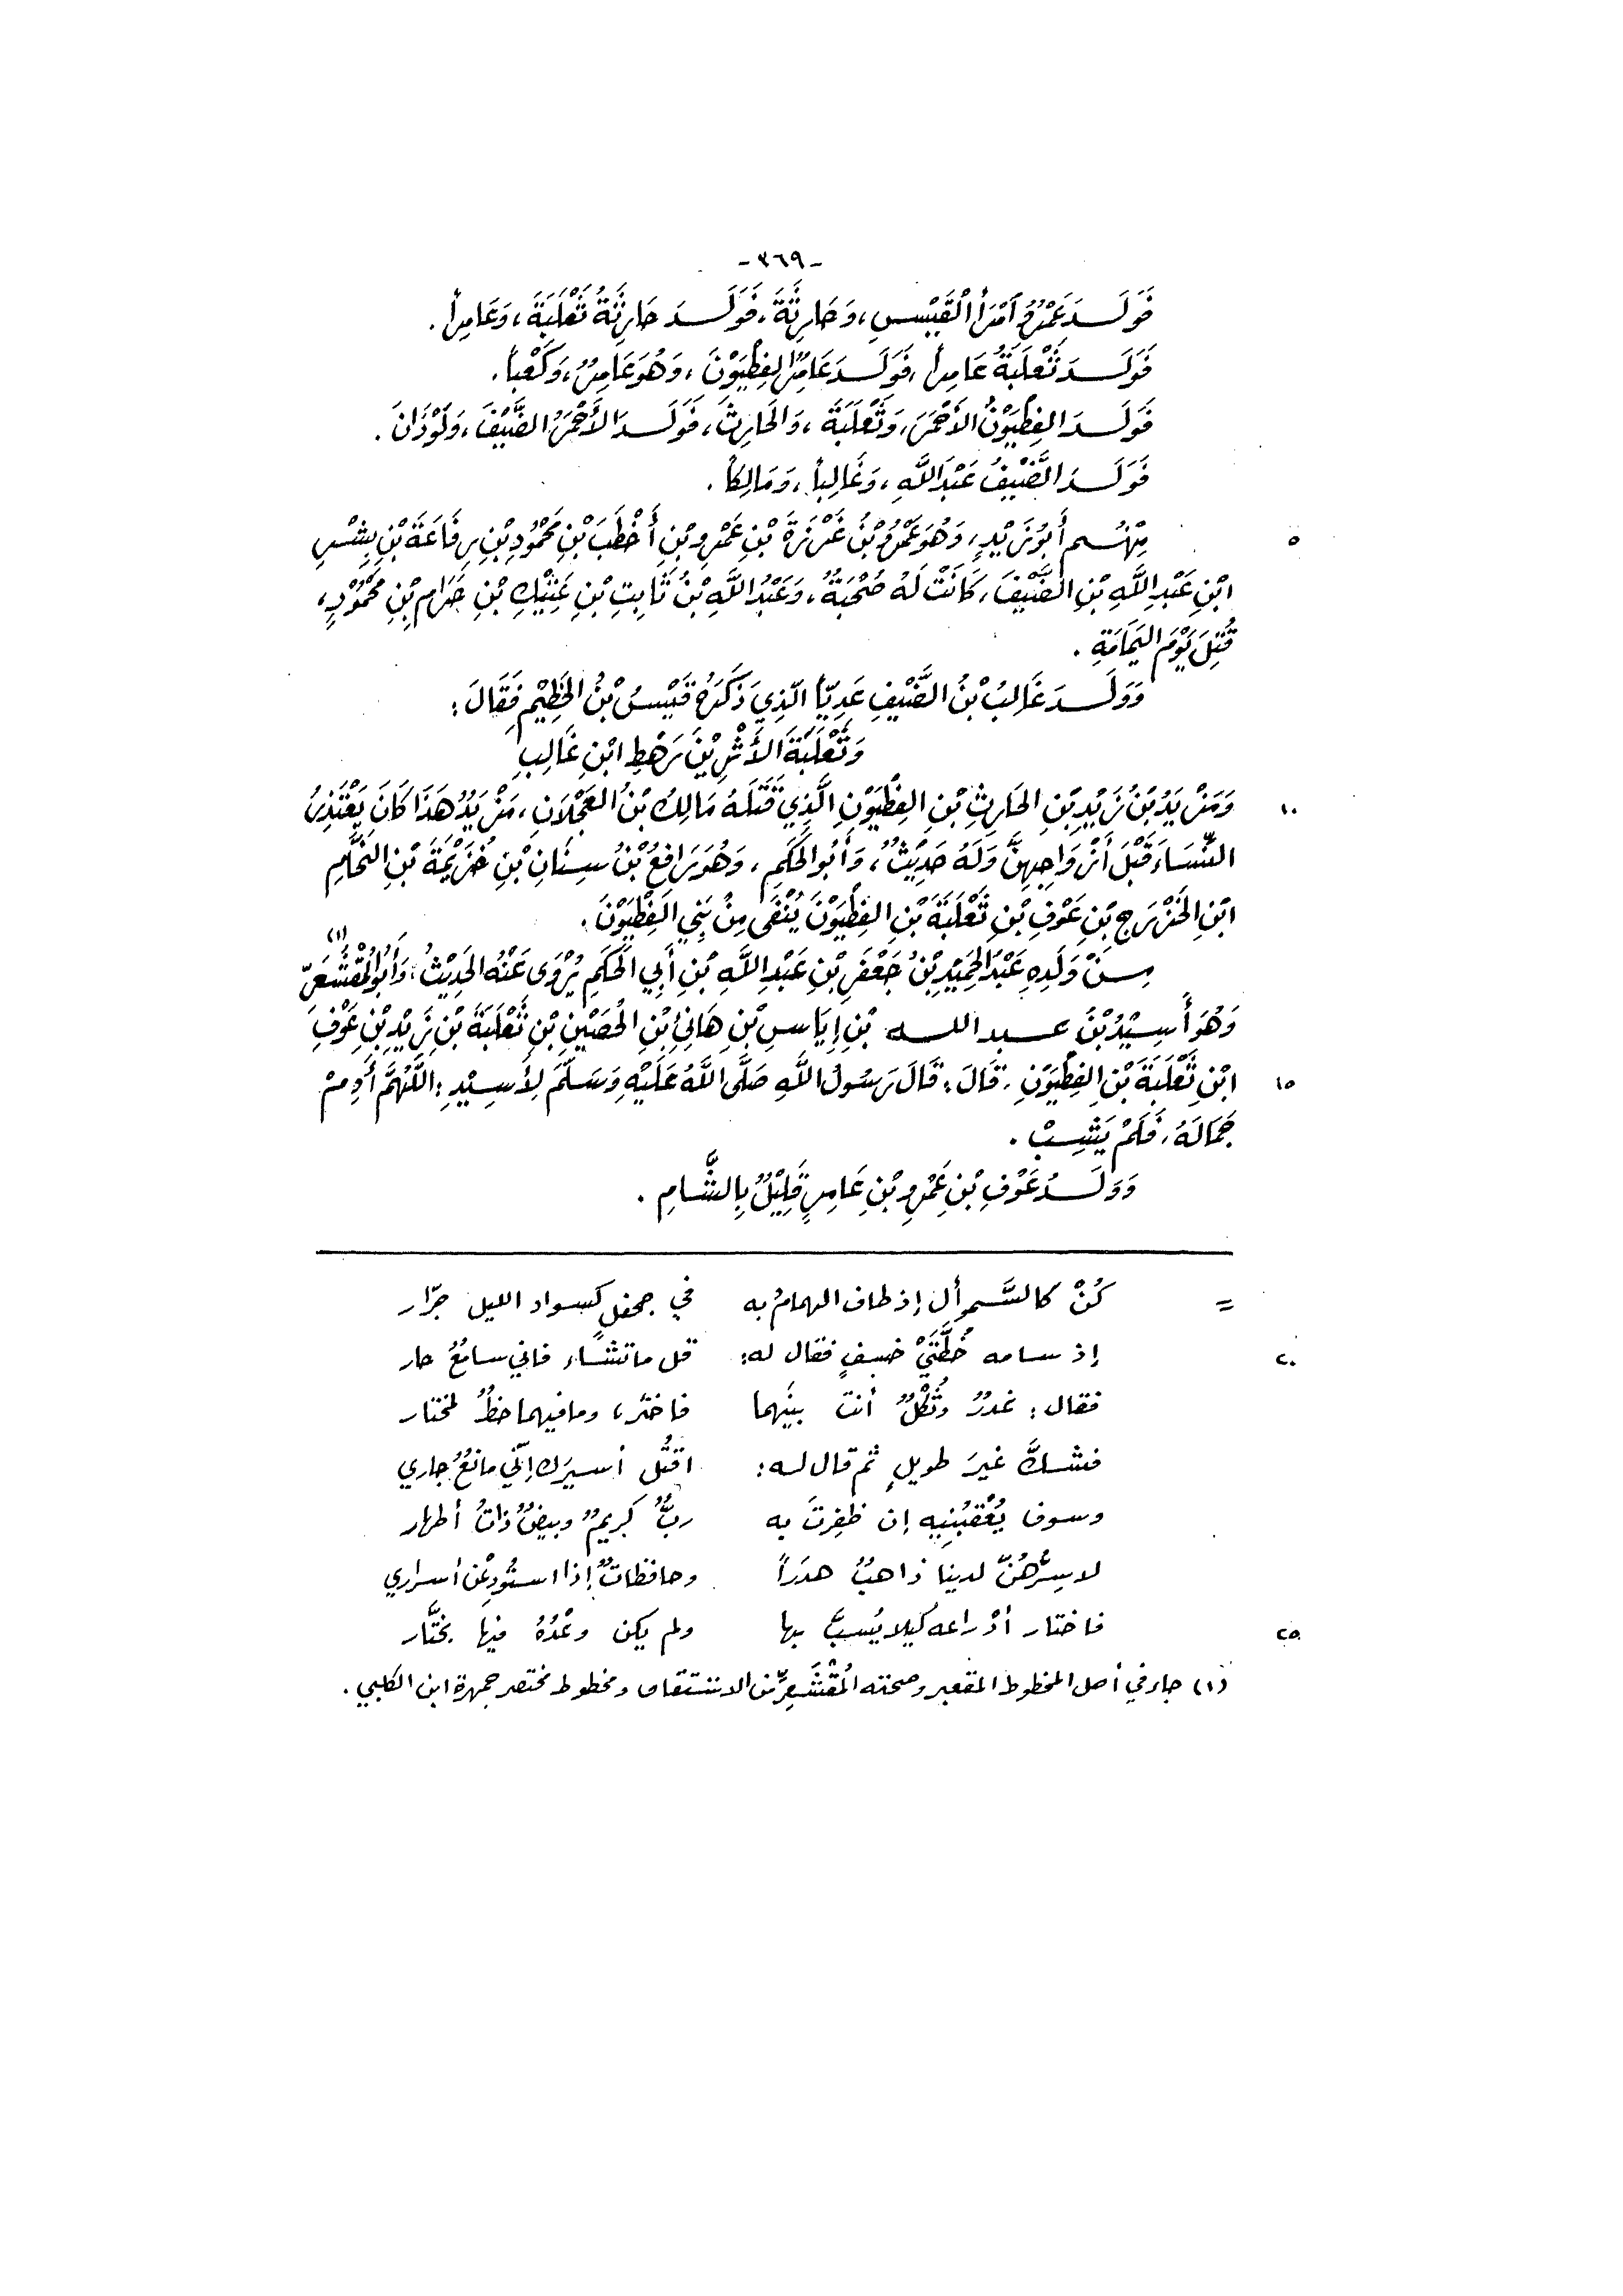 -٣٦٩-
فَوَلَدَ عَمْرٌو آمْرَأَ الْقَيْسِ، وَحَارِثَةَ، فَوَلَدَ حَارِثَةُ ثَعْلَبَةَ، وَعَامِراً.
فَوَلَدَ ثَعْلَبَةُ عَامِراً، فَوَلَدَ عَامِرٌ الفِطْيَوْنَ، وَهُوَ عَامِرٌ، وَكَعْباً.
فَوَلَدَ الفِطْيَوْنُ الأَحْمَرَ، وَثَعْلَبَةَ، وَالحَارِثَ، فَوَلَدَ الأَحْمَرُ الضَّيْفَ، وَلَوْذَانَ.
فَوَلَدَ الضَّيْفُ عَبْدَ اللَّهِ، وَغَالِباً، وَمَالِكاً.
٥ مِنْهُم أَبُو زَيْدٍ، وَهُوَ عَمْرُو بْنُ عَزْرَةَ بْنِ عَمْرِو بْنِ أَخْطَبَ بْنِ مَحْمُودِ بْنِ رِفَاعَةَ بْنِ بِشْرِ
ابْنِ عَبْدِ اللَّهِ بْنِ الضَّيْفِ، كَانَتْ لَهُ صُحْبَةٌ، وَعَبْدُ اللَّهِ بْنُ ثَابِتِ بْنِ عَتِيْكِ بْنِ حَرَامِ بْنِ مَحْمُوْدٍ،
قُتِلَ يَوْمَ اليَمَامَةِ.
وَوَلَدَ غَالِبُ بْنُ الضَّيْفِ عَدِيّاً الّذِي ذَكَرَهُ قَيْسُ بْنُ الخَطِيْمِ فَقَالَ:
وَثَعْلَبَةَ الأَثْرِيْنَ رَهْطِ ابْنِ غَالِبِ
١٠ وَمَزْيَدُ بْنُ زَيْدِ بْنِ الحَارِثِ بْنِ الفِطْيَوْنِ الَّذِي قَتَلَهُ مَالِكُ بْنُ العَجْلَانِ، مَزْيَدُ هَذَا كَانَ يَعْتَذِرُ
النِّسَاءَ قَبْلَ أَزْوَاجِهِنَّ وَلَهُ حَدِيْثٌ، وَأَبُو الحَكَمِ، وَهُوَ رَافِعُ بْنُ سِنَانِ بْنِ خُزَيْمَةَ بْنِ النَّحَّامِ
ابْنِ الخَزْرَجِ بْنِ عَوْفِ بْنِ ثَعْلَبَةَ بْنِ الفِطْيَوْنَ يُنْفَى مِنْ بَنِي الفِطْيَوْنَ.
مِنْ وَلَدِهِ عَبْدُ الحَمِيْدِ بْنُ جَعْفَرِ بْنِ عَبْدِ اللَّهِ بْنِ أَبِي الحَكَمِ يُرْوَى عَنْهُ الحَدِيْثُ، وَأَبُو المُقْشَعِرِّ(١)
وَهُوَ أَسِيْدُ بْنُ عبد الله بْنِ إِيَاسِ بْنِ هَانِئِ بْنِ الحُصَيْنِ بْنِ ثَعْلَبَةَ بْنِ زَيْدِ بْنِ عَوْفِ
١٥ ابْنِ ثَعْلَبَةَ بْنِ الفِطْيَوْنِ، قَالَ: قَالَ رَسُولُ اللَّهِ صَلَّى اللَّهُ عَلَيْهِ وَسَلَّمَ لِأَسِيْدٍ: اللَّهُمَّ أَدِمْ
جَمَالَهُ، فَلَمْ يَشِبْ.
وَوَلَدُ عَوْفِ بْنِ عَمْرِو بْنِ عَامِرٍ قَلِيْلٌ بِالشَّامِ.
= كُنْ كالسَّموأل إذ طاف الهمامُ به في جحفلٍ كسواد الليل جرّار
٢٠ إذ سامه خُطَّتَيْ خسفٍ فقال له: قل ما تشاء فاني سامعٌ حار
فقال: غدرٌ وثُكْلٌ أنت بينَهما فاختر، وما فيهما حظٌ لمختار
فشكَّ غيرَ طويلٍ ثم قال له: اقتُل أسيرَك إنّي مانعٌ جاري
وسوف يُعْقبُنِيه إن ظفِرتَ به ربٌّ كريمٌ وبيضٌ ذاتُ أطهار
لا سِرُّهُنّ لدينا ذاهبٌ هدَراً وحافظاتٌ إذا استُودِعْن أسراري
٢٥ فاختار أدْراعه كيلا يُسبَّ بها ولم يكن وعْدُهُ فيها بختَّار
(١) جاء في أصل المخطوط المقعبر وصحته المُقْشَعِرّ من الاشتقاق ومخطوط مختصر جمهرة ابن الكلبي.